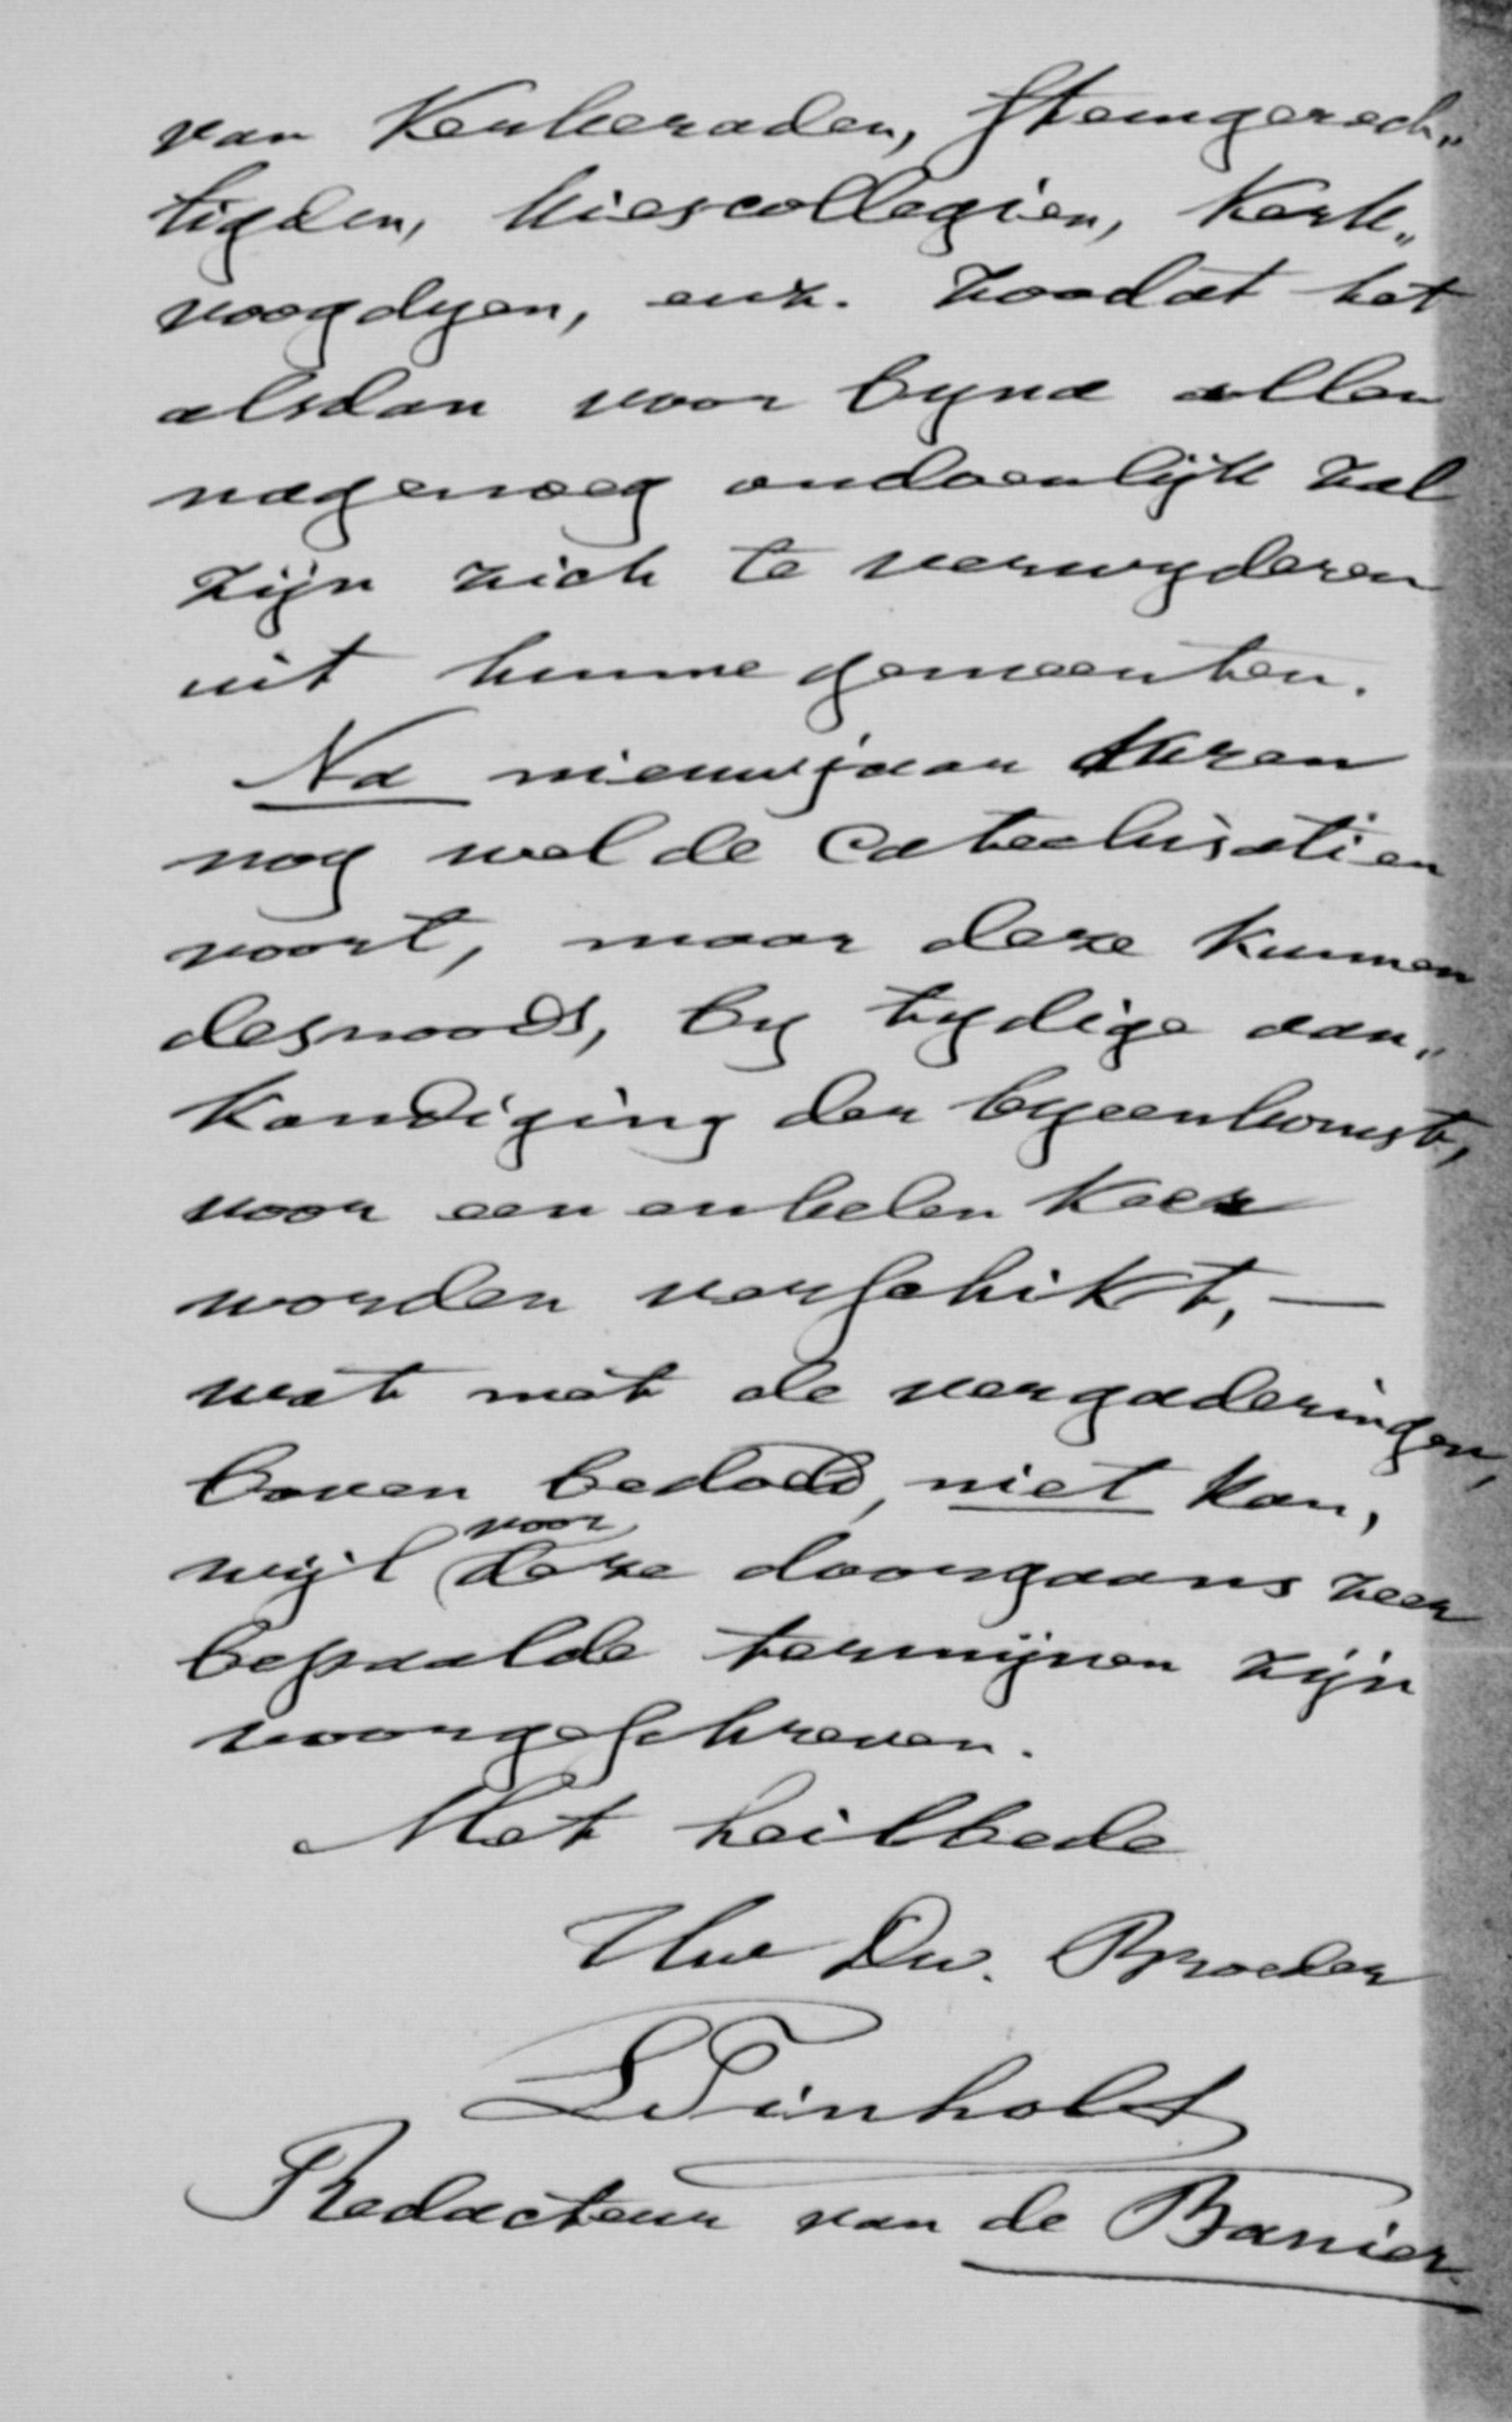 van Kerkeraden, Stemgerech„
tigden, kiescollegien, Kerk„
voogdyen, enz. zoodat het
alsdan voor byna allen
nagenoeg ondoenlijk zal
zijn zich te verwyderen
uit hunne gemeenten.
Na nieuwjaar duren
nog wel de catechisatien
voort, maar deze kunnen
desnoods, by tydige aan„
kondiging der byeenkomst,
voor een enkelen keer
worden verschikt, —
wat met de vergaderingen,
boven bedoeld, niet kan,
wijl voor deze doorgaans zeer
bepaalde termijnen zijn
voorgeschreven.
Met heilbede
Uw Dw. Broeder
L Tinholt
Redacteur van de Banier.